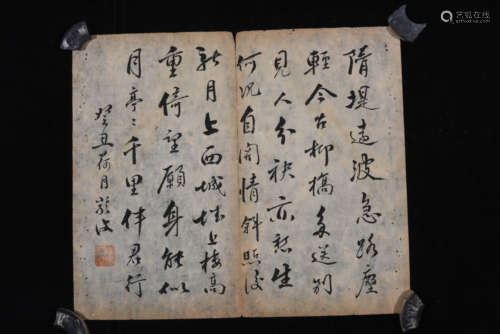 隋堤遠波急路塵
輕今古柳橋多送别
見人分袂亦愁生
何况自關情斜照後
新月上西城城上樓高
重倚望願身能似
月亭〻千里伴君行
癸丑荷月
艺狐在线